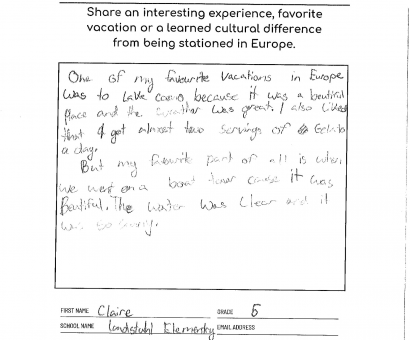 Share an interesting experience, favorite
vacation or a learned cultural difference
from being stationed in Europe.
One of my favourite vacations in Europe
was to Lake Como because it was a beutiful
place and the weather was great. I also liked
that I got almost two servings of Gelato
a day.
But my favorite part of all is when
we went on a boat tour cause it was
Beutiful. The water was clear and it
was so sunny.
FIRST NAME Claire GRADE 5
SCHOOL NAME Landstuhl Elementary EMAIL ADDRESS